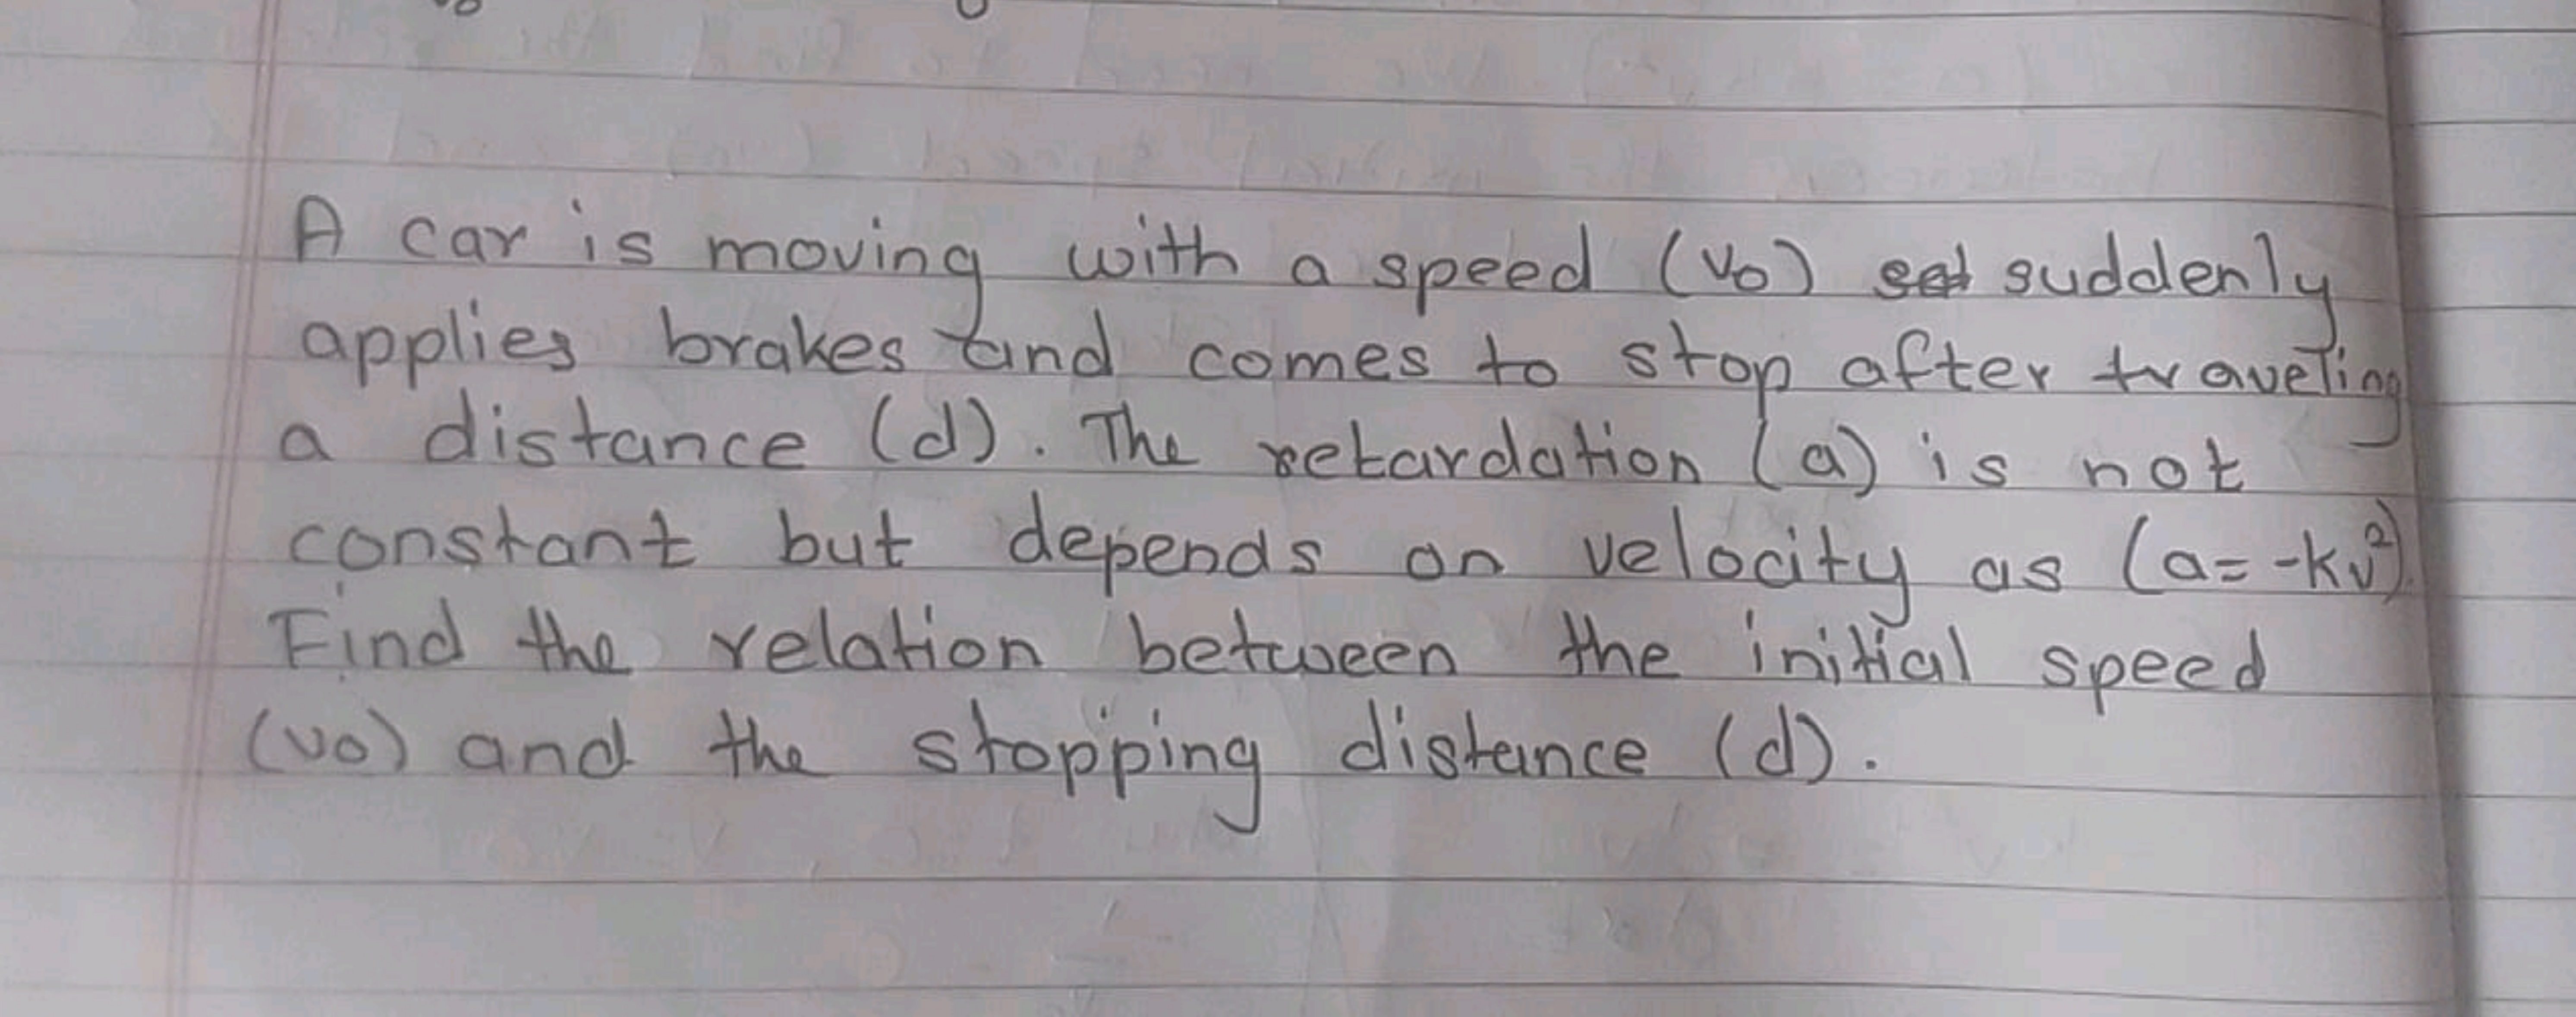 A car is moving with a speed (v₀) suddenly
applies brakes and comes to stop after traveling
a distance (d). The retardation (a) is not
constant but depends on velocity as (a= -kv²).
Find the relation between the initial speed
(v₀) and the stopping distance (d).